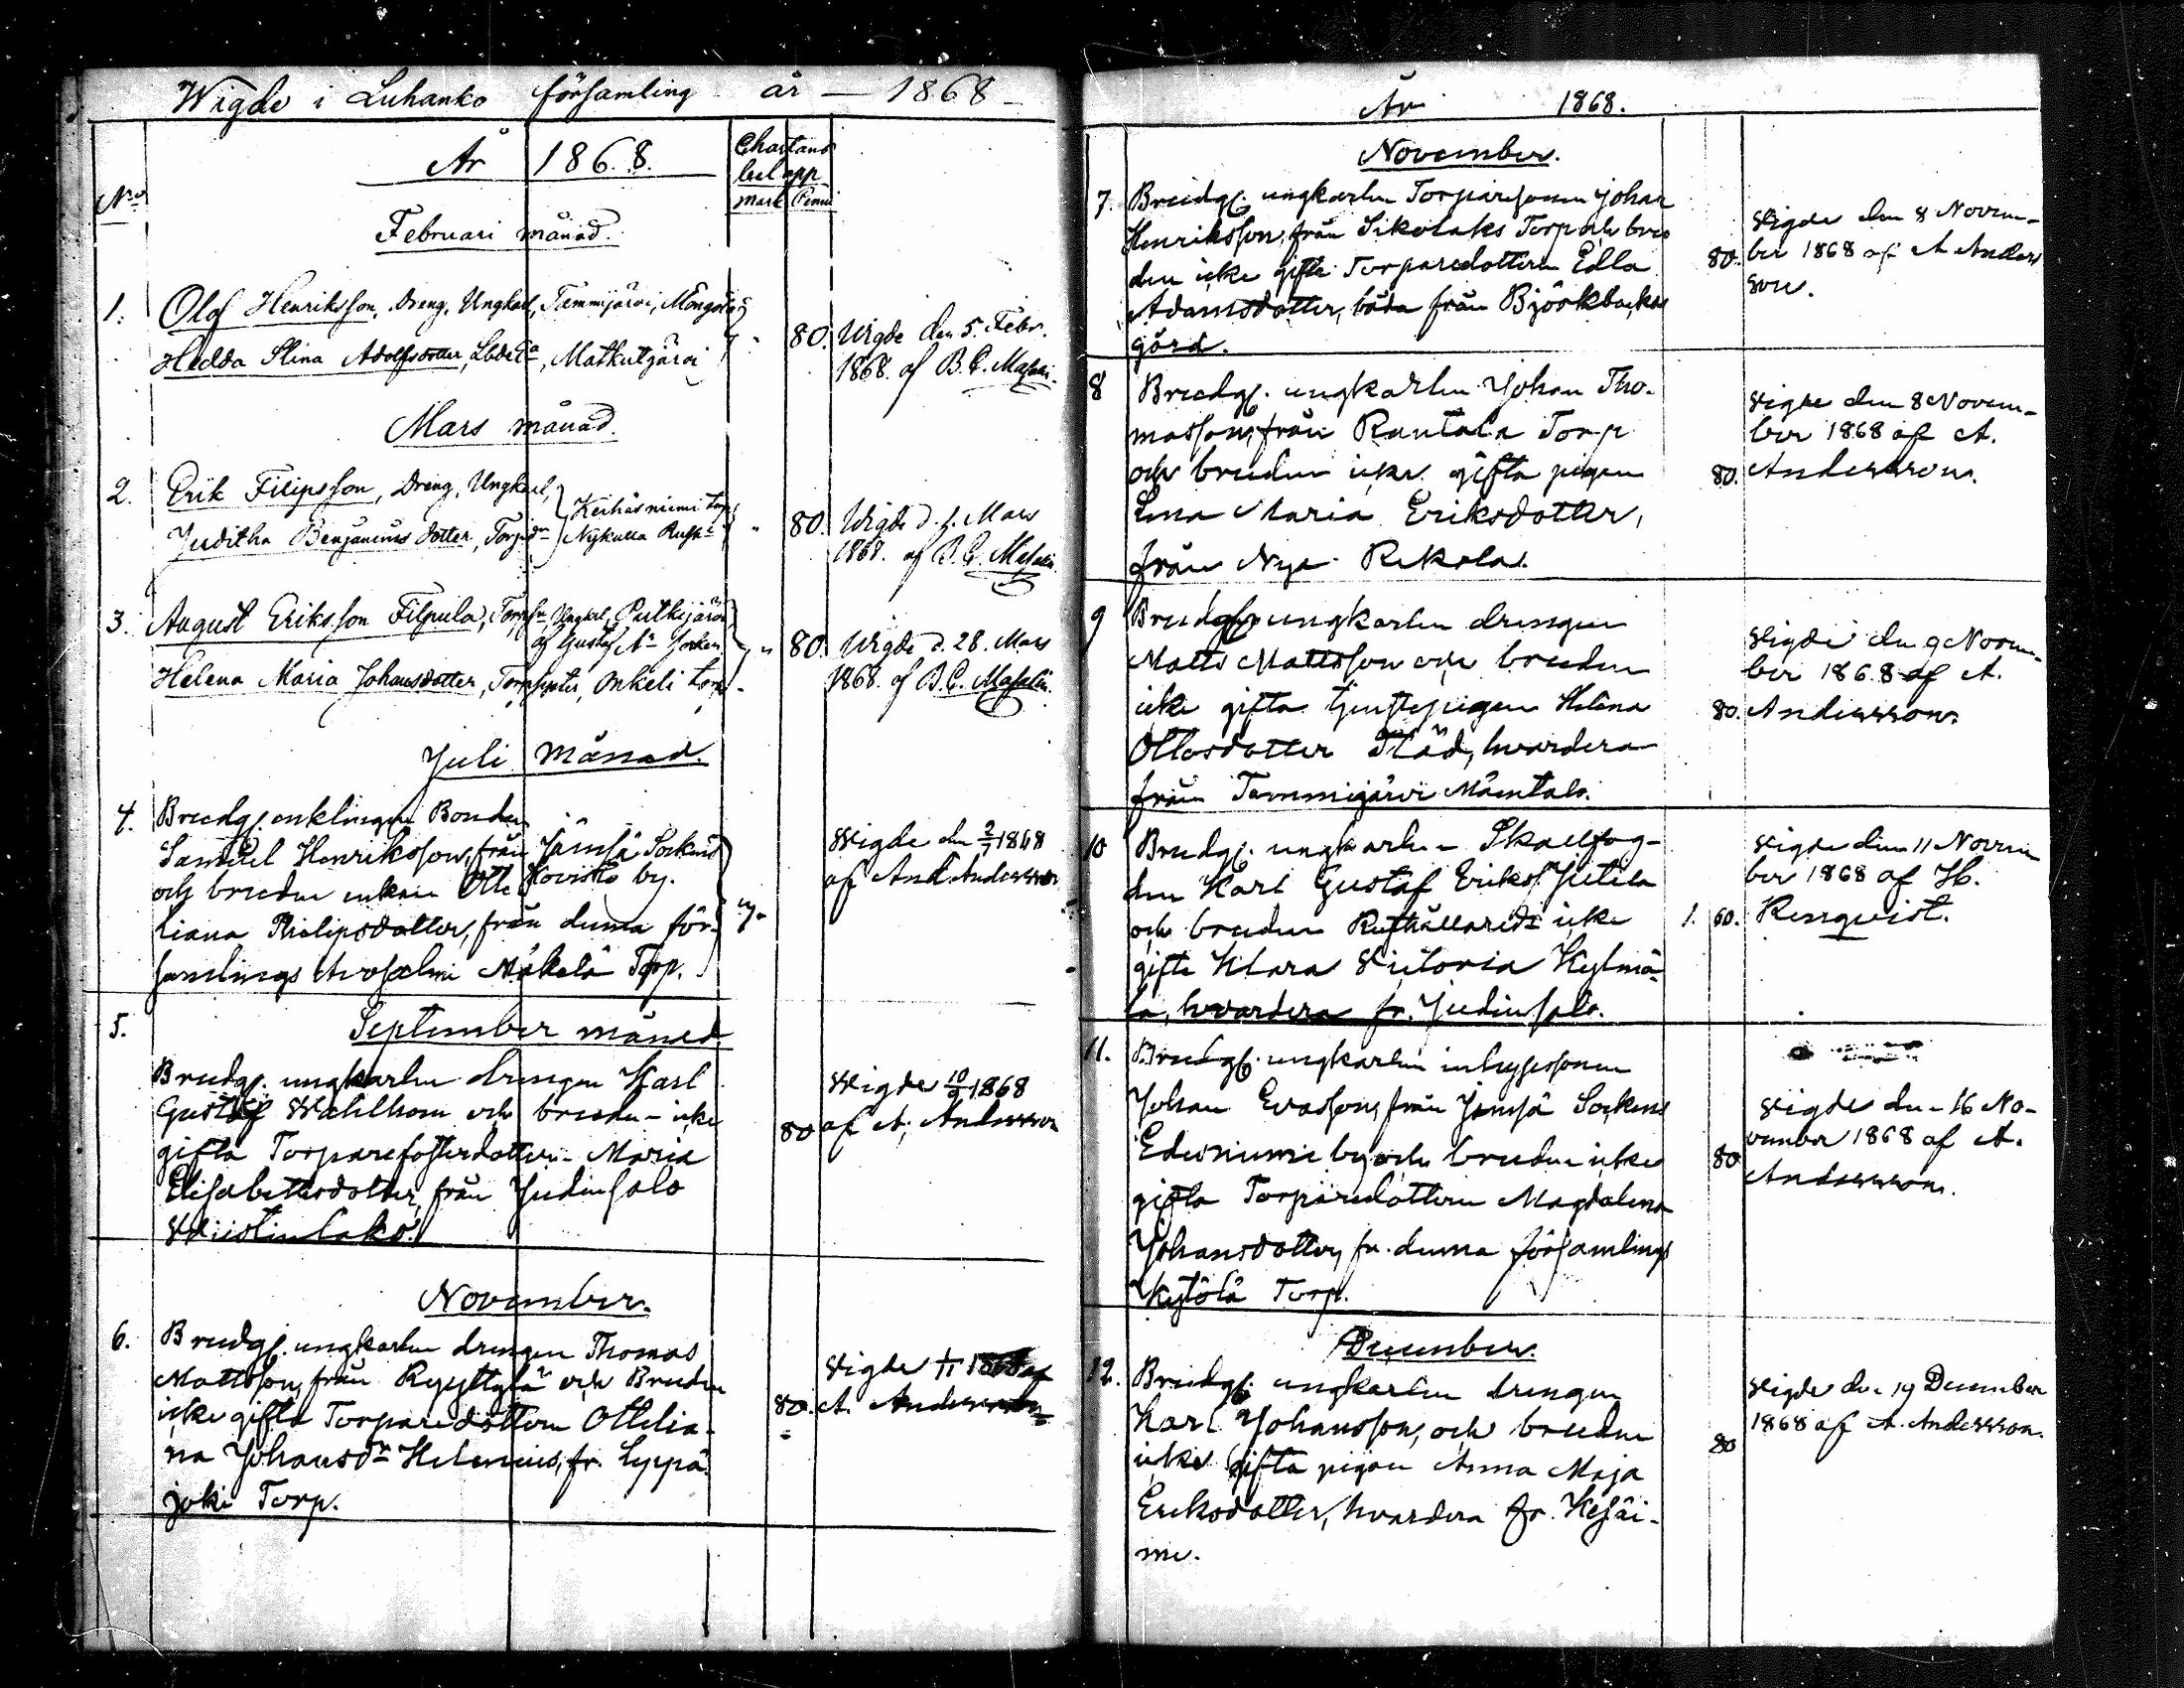 Wigde i Luhanko församling år — 1868 —
År 1868.
Chartans
bel opp
No
mark Penni
Februari månad.
1. Olof Henriksson, Dreng, Ungkarl, Tammijärvi,
Hedda Stina Adolfsdotter, Matkutjärvi
80. Wigde den 5. Febr.
1868. af B. C.
Mars månad.
2. Erik Filipsson, Dreng, Ungkarl, Keihäsniemi torp
Juditha Benjaminsdotter, Nykulla
80. Wigde d. 1. Mars
1868. af B. C.
3. August Eriksson Filpula, Ungkarl, Putkijärvi
af Gustaf
Helena Maria Johansdotter, Onkeli torp.
80. Wigde d. 28. Mars
1868. af B. C.
Juli månad.
4. Brudg. enklingen Bonden
Samuel Henriksson, från Jämsä Sockens
och bruden enkan Otte Hovisko by.
liana Philipsdotter, från denna för-
samlings Mäkelä Torp.
Wigde den 2/7 1868
af And. Andersson
September månad
5. Brudg. ungkarlen drengen Karl
Gustaf Wahlhom och bruden icke
gifta Torparefosterdottern Maria
Elisabethsdotter, från Judinsalo
80 Wigde 10/9 1868
af A. Andersson
November.
6. Brudg. ungkarlen drengen Thomas
Mattsson, från Ryyttylä och Bruden
icke gifta Torparedottern Ottilia-
na Johansdr Helenius, fr. Leppä-
joki Torp.
80. Wigde 1/11 1868 af
A. Andersson
År 1868.
November.
7. Brudg. ungkarlen Torparesonen Johan
Henriksson, från Torp och bru
den icke gifte Torparedottern Edla
Adamsdotter, båda från Björkbacka
gård.
80. Wigde den 8 Novem-
ber 1868 af A Anders
son.
8 Brudg. ungkarlen Johan Tho-
masson, från Rantala Torp
och bruden icke gifta pigan
Lena Maria Eriksdotter,
från Nya Rekola.
Wigde den 8 Novem-
ber 1868 af A.
80. Andersson.
9 Brudg. ungkarlen drengen
Matts Mattsson och bruden
icke gifta tjenstepigan Helena
Ottosdotter Städ, hvardera
från Tammijärvi Mäntala.
Wigde den 9 Novem-
ber 1868 af A.
80. Andersson.
10 Brudg. ungkarlen Skallfog-
den Karl Gustaf Erikss. Jutila
och bruden Rusthållaredr icke
gifte Klara Victoria Kylmä-
la, hvardera fr. Judinsalo.
Wigde den 11 Novem
ber 1868 af H.
1. 60. Renqvist.
11. Brudg. ungkarlen inhysessonen
Johan Evasson, från Jämsä Sockens
Edesniemi by och bruden icke
gifta Torparedottern Magdalena
Johansdotter, fr. denna församlings
Kytölä Torp.
Wigde den 16 No-
vember 1868 af A.
80 Andersson.
December.
12. Brudg. ungkarlen drengen
Karl Johansson, och bruden
icke gifta pigan Anna Maja
Eriksdotter, hvardera fr. Kesäi-
me.
Wigde den 19 December
1868 af A. Andersson.
80